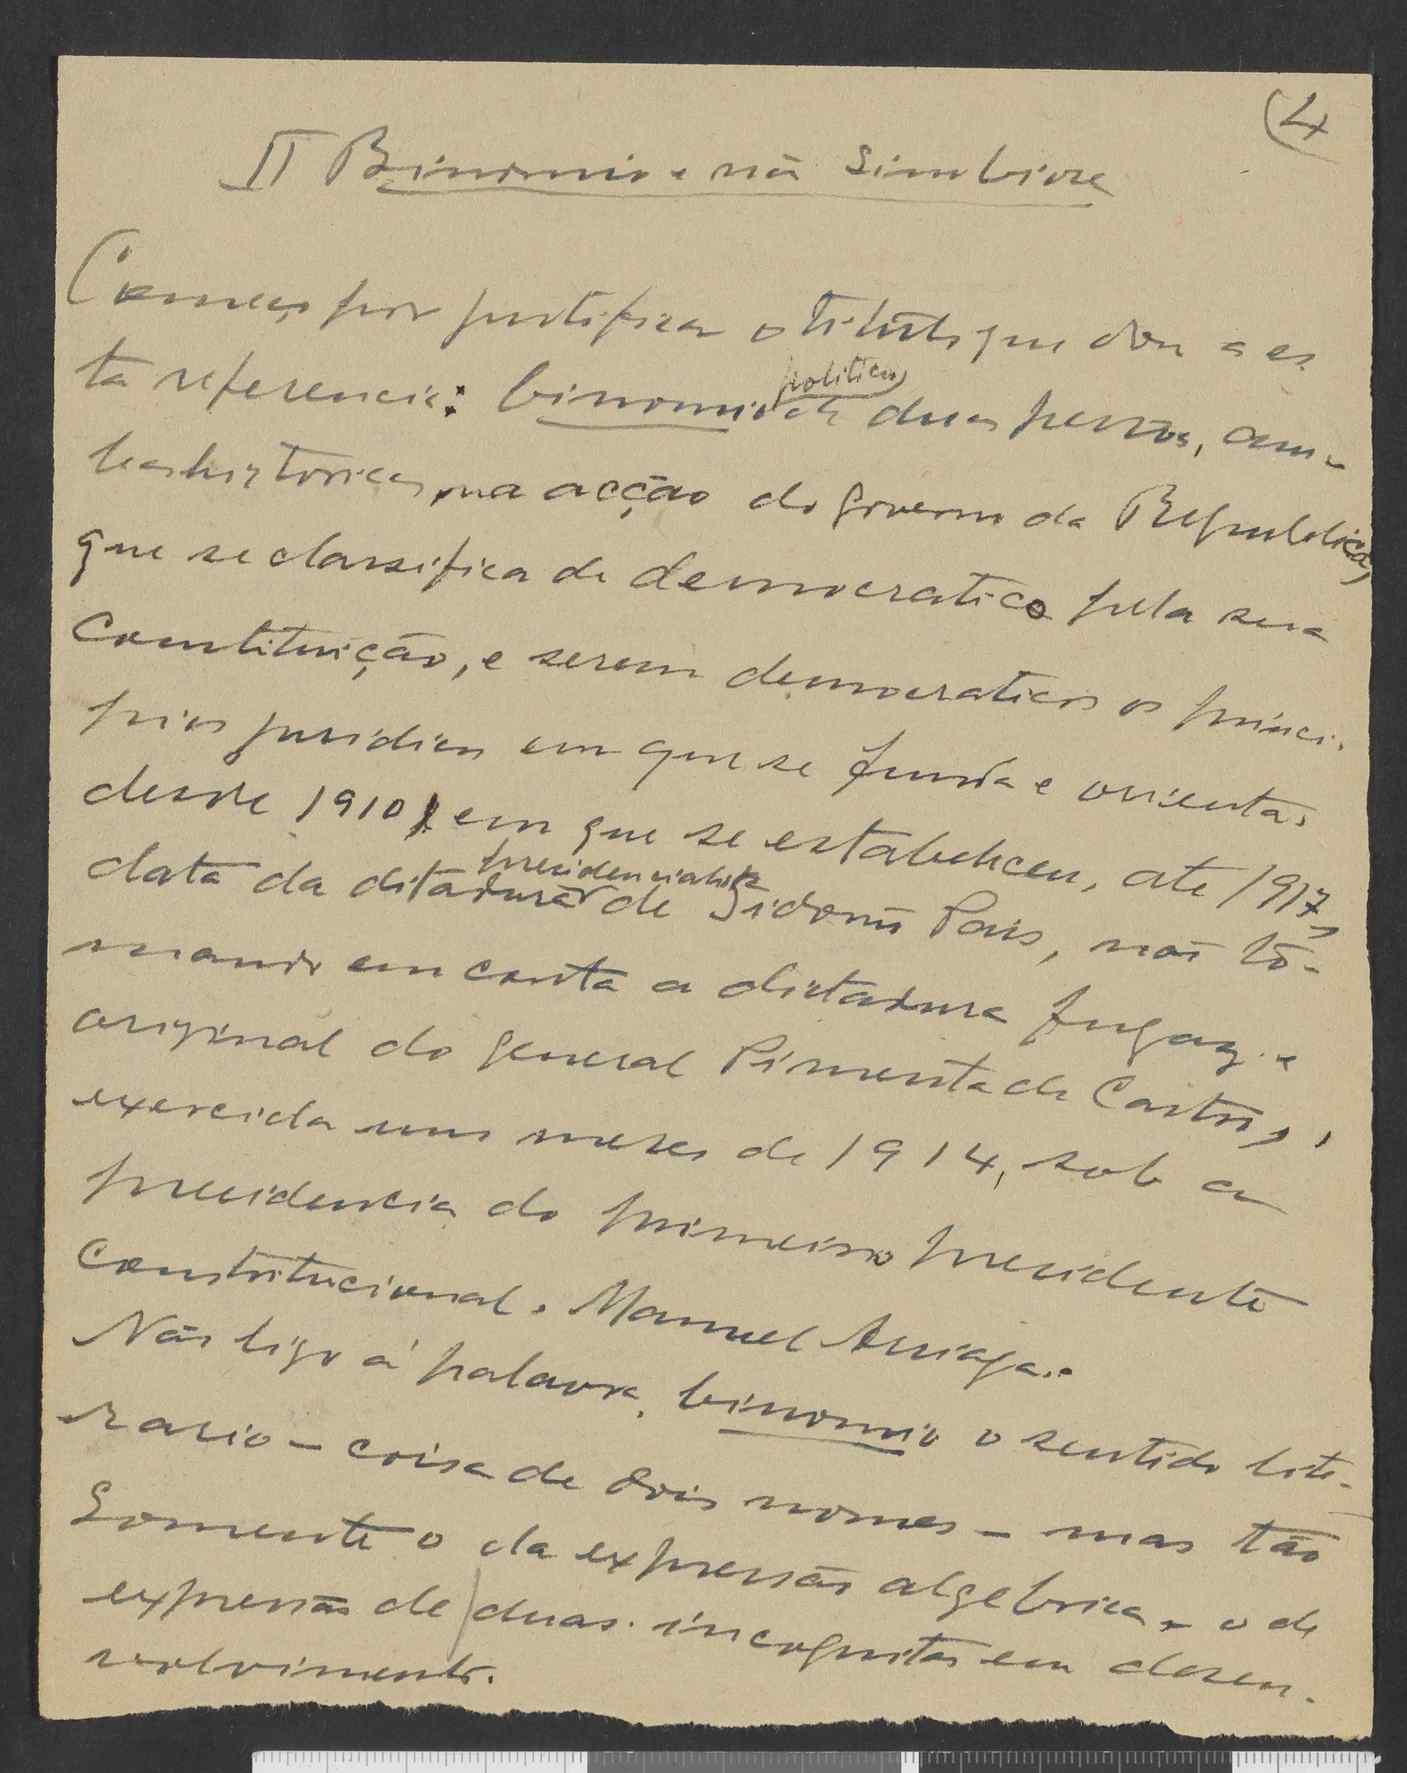 (4
II Binomio e não simbiose
Começo por justificar o titulo que dou a es-
ta referencia: binomio politico de duas pessoas, am-
bas historicas, na acção do governo da Republica,
que se classifica de democratico pela sua
Constituição, e serem democraticos os princi-
pios juridicos em que se funda e orienta,
desde 1910, em que se estabeleceu, ate 1917,
data da ditadura presidencialista de Sidonio Pais, não to-
mando em conta a dictadura fugaz e
original do general Pimenta de Castro,
exercida uns meses de 1914, sob a
presidencia do primeiro presidente
Constitucional. Manuel Arriaga.
Não ligo á palavra binomio o sentido lite-
rario – coisa de dois nomes – mas tão
somente o da expressão algebrica, o de
expressão de duas incognitas em desen-
volvimento.